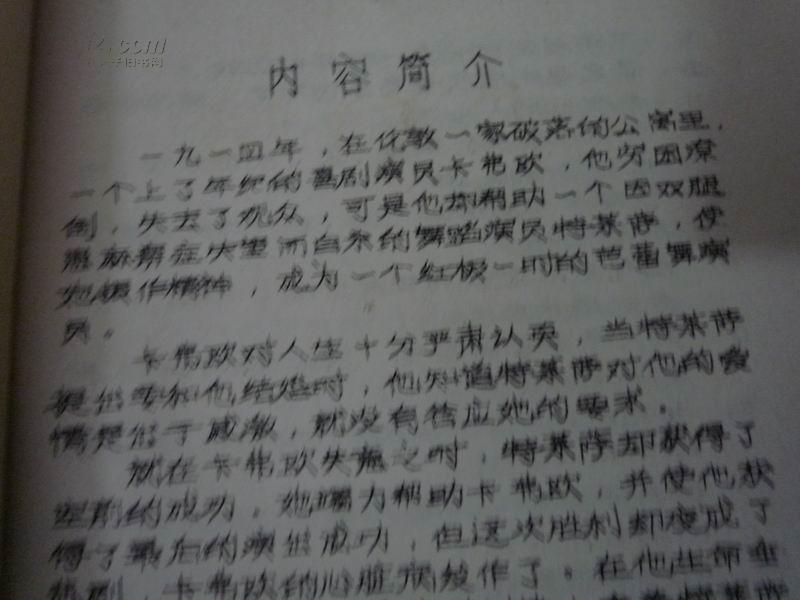 内容简介
一九一四年，在伦敦一家破落的公寓里，
一个上了年纪的喜剧演员卡弗欧，他穷困潦
倒，失去了观众，可是他却帮助一个因双腿
麻痹症失望而自杀的舞蹈演员特莱萨，使
她振作精神，成为一个红极一时的芭蕾舞演
员。
卡弗欧对人生十分严肃认真，当特莱萨
提出要和他结婚时，他知道特莱萨对他的爱
情是出于感激，就没有答应她的要求。
就在卡弗欧失意之时，特莱萨却获得了
空前的成功，她竭力帮助卡弗欧，并使他获
得了最后的演出成功，但这次胜利却变成了
悲剧，卡弗欧的心脏病发作了。在他生命垂